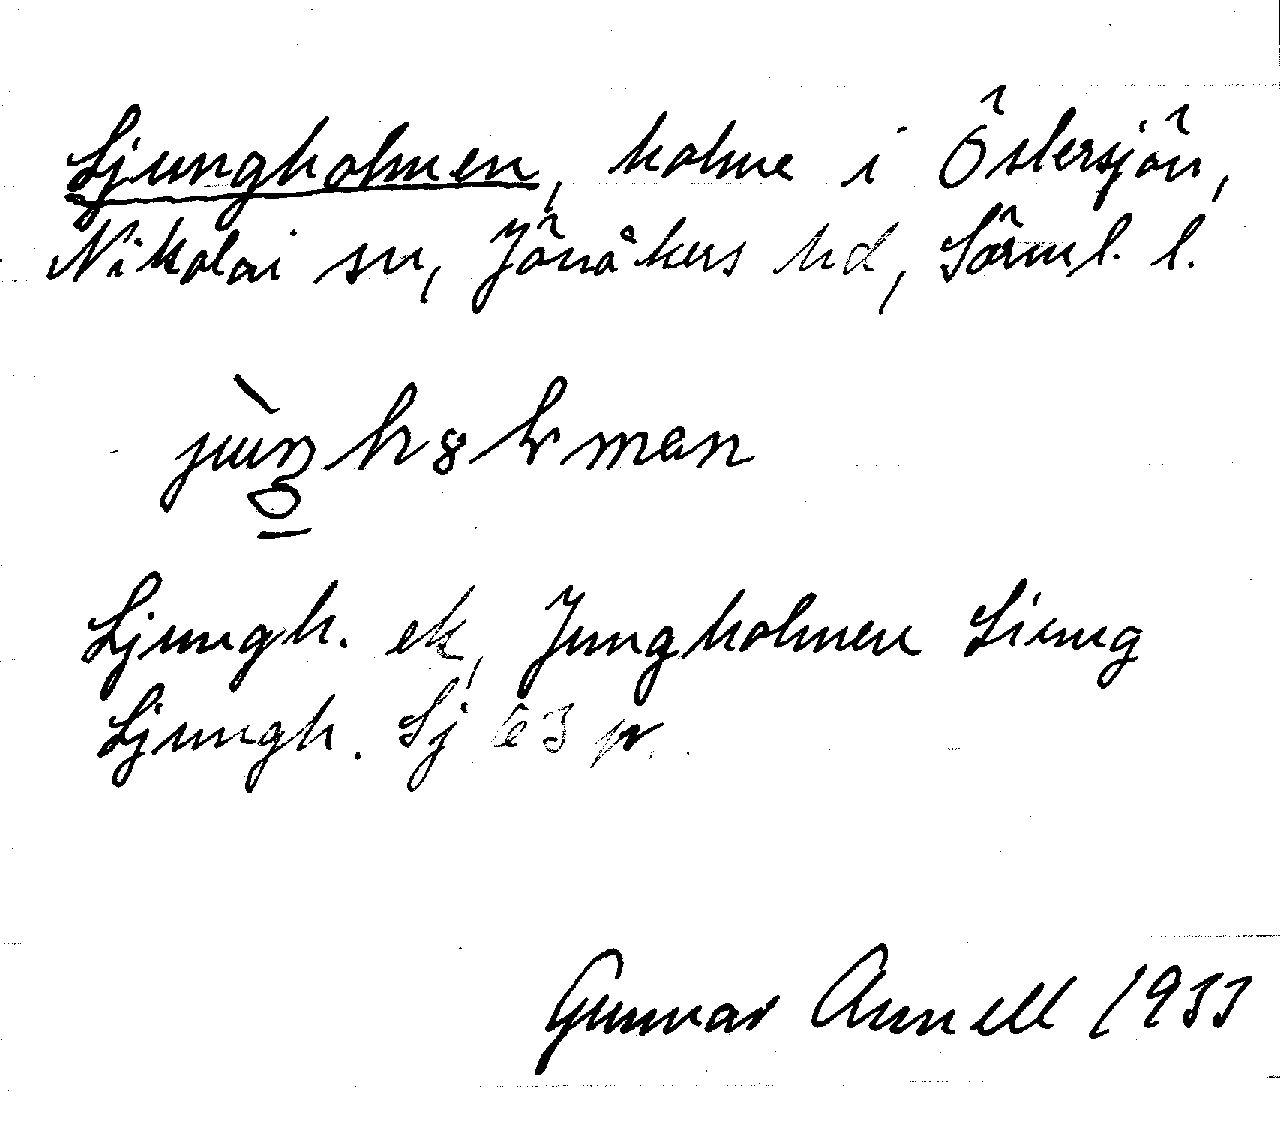 Ljungholmen, holme i Östersjön,
Nikolai sn, Jönåkers hd, Sörml. l.
Ljungh. ek, Jungholmen Liung
Ljungh. Sj 63 p.
Gunnar Annell 1933